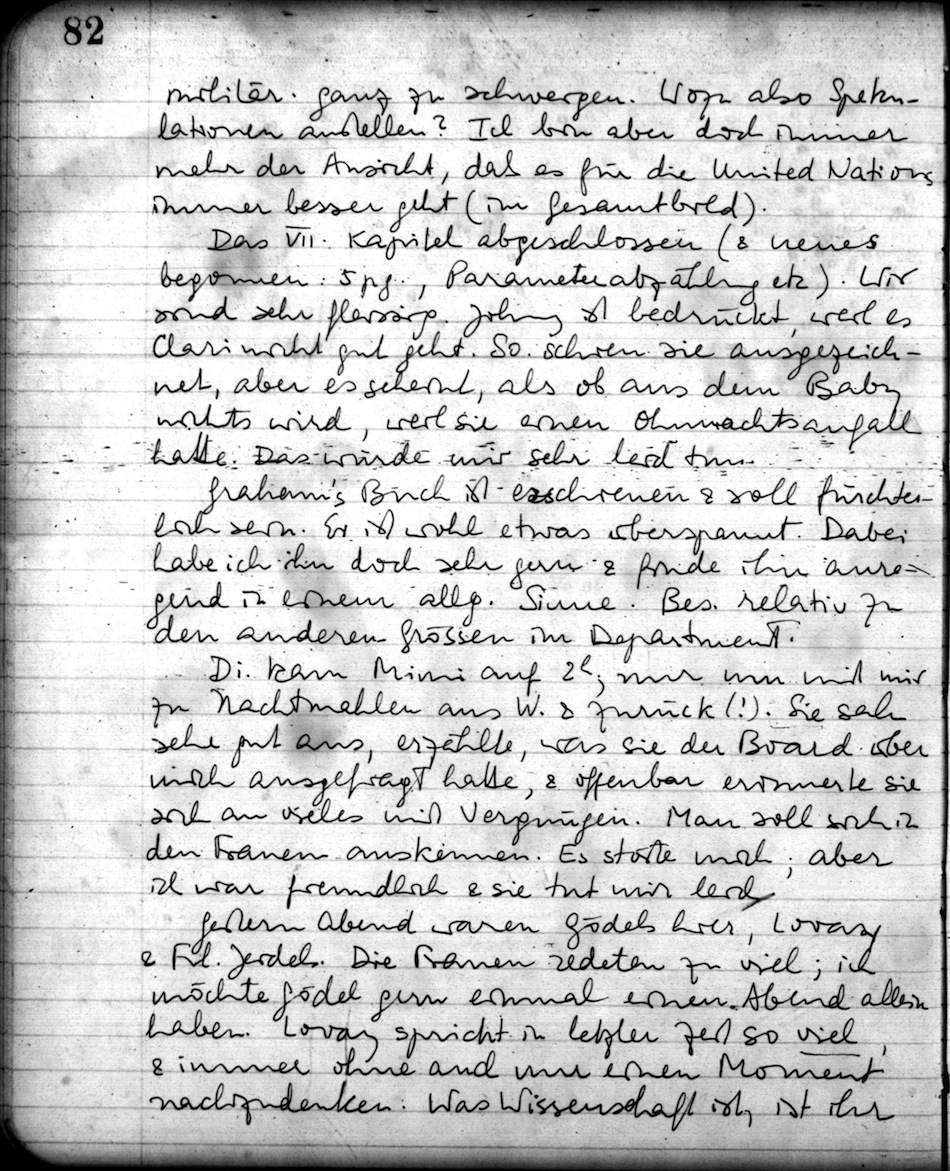 82
militär. ganz zu schweigen. Wozu also Speku-
lationen anstellen? Ich bin aber doch immer
mehr der Ansicht, daß es für die United Nations
immer besser geht (im Gesamtbild).
Das VII. Kapitel abgeschlossen (& neues
begonnen. 5 pg., Parameterabzählung etc). Wir
sind sehr fleissig. Johnny ist bedrückt, weil es
Clari nicht gut geht. So schien sie ausgezeich-
net, aber es scheint, als ob aus dem Baby
nichts wird, weil sie einen Ohnmachtsanfall
hatte. Das würde mir sehr leid tun.
Graham's Buch ist erschienen & soll fürchter-
lich sein. Er ist wohl etwas überspannt. Dabei
habe ich ihn doch sehr gern & finde ihn anre-
gend in einem allg. Sinne. Bes. relativ zu
den anderen Grössen im Department.
Di. kam Mimi auf 2h, nur um mit mir
zu Nachtmahlen aus W. & zurück (!). Sie sah
sehr gut aus, erzählte, was sie der Board über
mich ausgefragt hatte, & offenbar erinnerte sie
sich an vieles mit Vergnügen. Man soll sich in
den Frauen auskennen. Es störte mich, aber
ich war freundlich & sie tut mir leid
Gestern Abend waren Gödels hier, Lovay
& Frl. Jerdels. Die Frauen redeten zu viel; ich
möchte Gödel gern einmal einen Abend allein
haben. Lovay spricht in letzter Zeit so viel,
& immer ohne auch nur einen Moment
nachzudenken. Was Wissenschaft ist, ist ihr